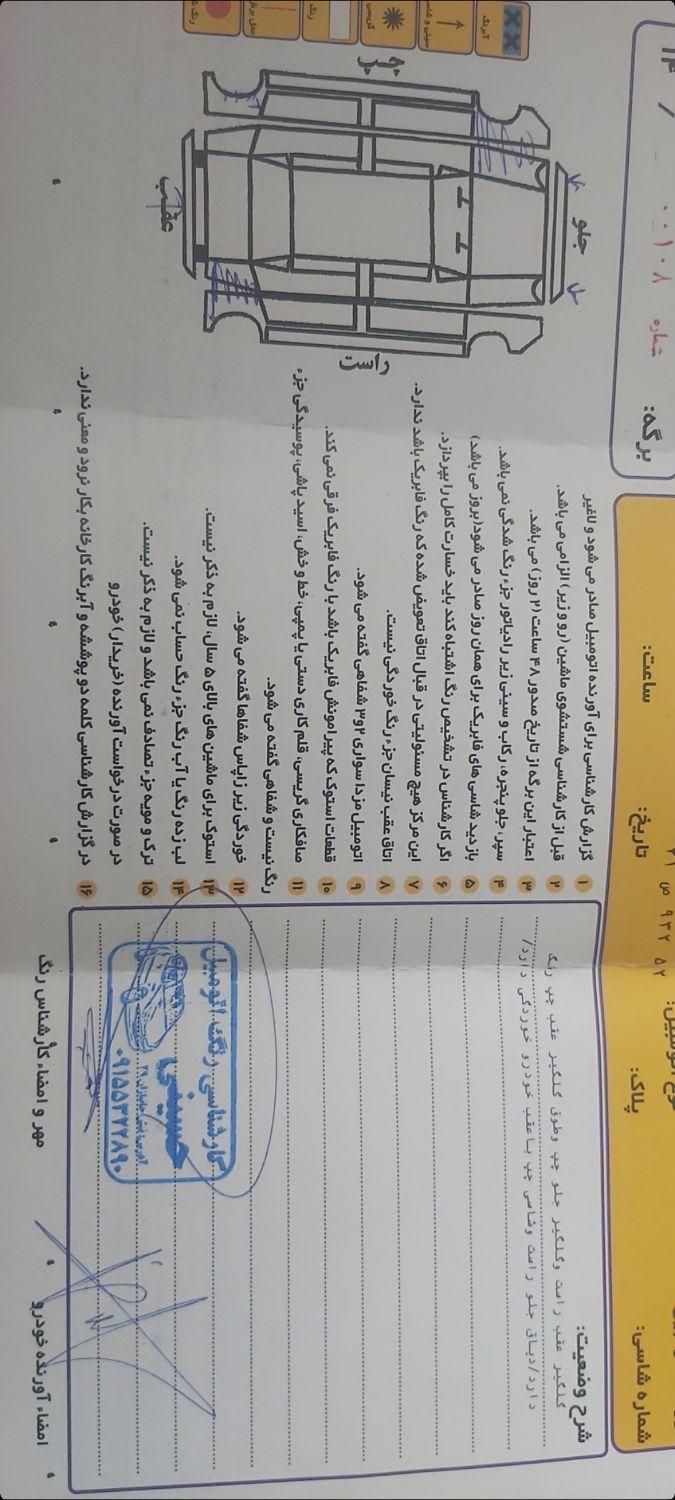 برگه:
ساعت:
تاریخ:
پلاک:
شماره شاسی:
شماره
۰۰۱۰۸
۱۴ /
۵۲ ۹۳۲ ص
آبرنگ
رنگ
جلو
عقب
راست
۱ گزارش کارشناسی برای آورنده اتومبیل صادر می شود و لاغیر
۲ قبل از کارشناسی شستشوی ماشین (رو و زیر) الزامی می باشد.
۳ اعتبار این برگه از تاریخ صدور ۴۸ ساعت (۲ روز) می باشد.
۴ سپر، جلو پنجره، رکاب و سینی زیر رادیاتور جزء رنگ شدگی نمی باشد.
۵ بازدید شاسی های فابریک برای همان روز صادر می شود(بروز می باشد)
۶ اگر کارشناس در تشخیص رنگ اشتباه کند باید خسارت کامل را بپردازد.
۷ این مرکز هیچ مسئولیتی در قبال اتاق تعویض شده که رنگ فابریک باشد ندارد.
۸ اتاق عقب نیسان جزء رنگ خوردگی نیست.
۹ اتومبیل مزدا سواری ۲و۳ شفاهی گفته می شود.
۱۰ قطعات استوک که پیرامونش فابریک باشد با رنگ فابریک فرقی نمی کند.
۱۱ صافکاری گریسی، قلم کاری دستی یا پمپی، خط و خش، اسید پاشی، پوسیدگی جزء
رنگ نیست و شفاهی گفته می شود.
۱۲ خوردگی زیر زاپاس شفاها گفته می شود.
۱۳ استوک برای ماشین های بالای ۵ سال، لازم به ذکر نیست.
۱۴ لب زده رنگ یا آب رنگ جزء رنگ حساب نمی شود.
۱۵ ترک و مویه جزء تصادف نمی باشد و لازم به ذکر نیست.
در صورت درخواست آورنده (خریدار) خودرو
۱۶ در گزارش کارشناسی کلمه دو پوششه و آبرنگ کارخانه بکار نرود و معنی ندارد.
شرح وضعیت:
گلگیر عقب راست وگلگیر جلو چپ وطوق گلگیر عقب چپ رنگ
دارد/دیاق جلو راست وشاسی چپ باعقب خودرو خوردگی دارد/
کارشناسی رنگ اتومبیل
حسینی
۰۹۱۵۵۳۲۲۸۹۰
مهر و امضاء کارشناس رنگ
امضاء آورنده خودرو